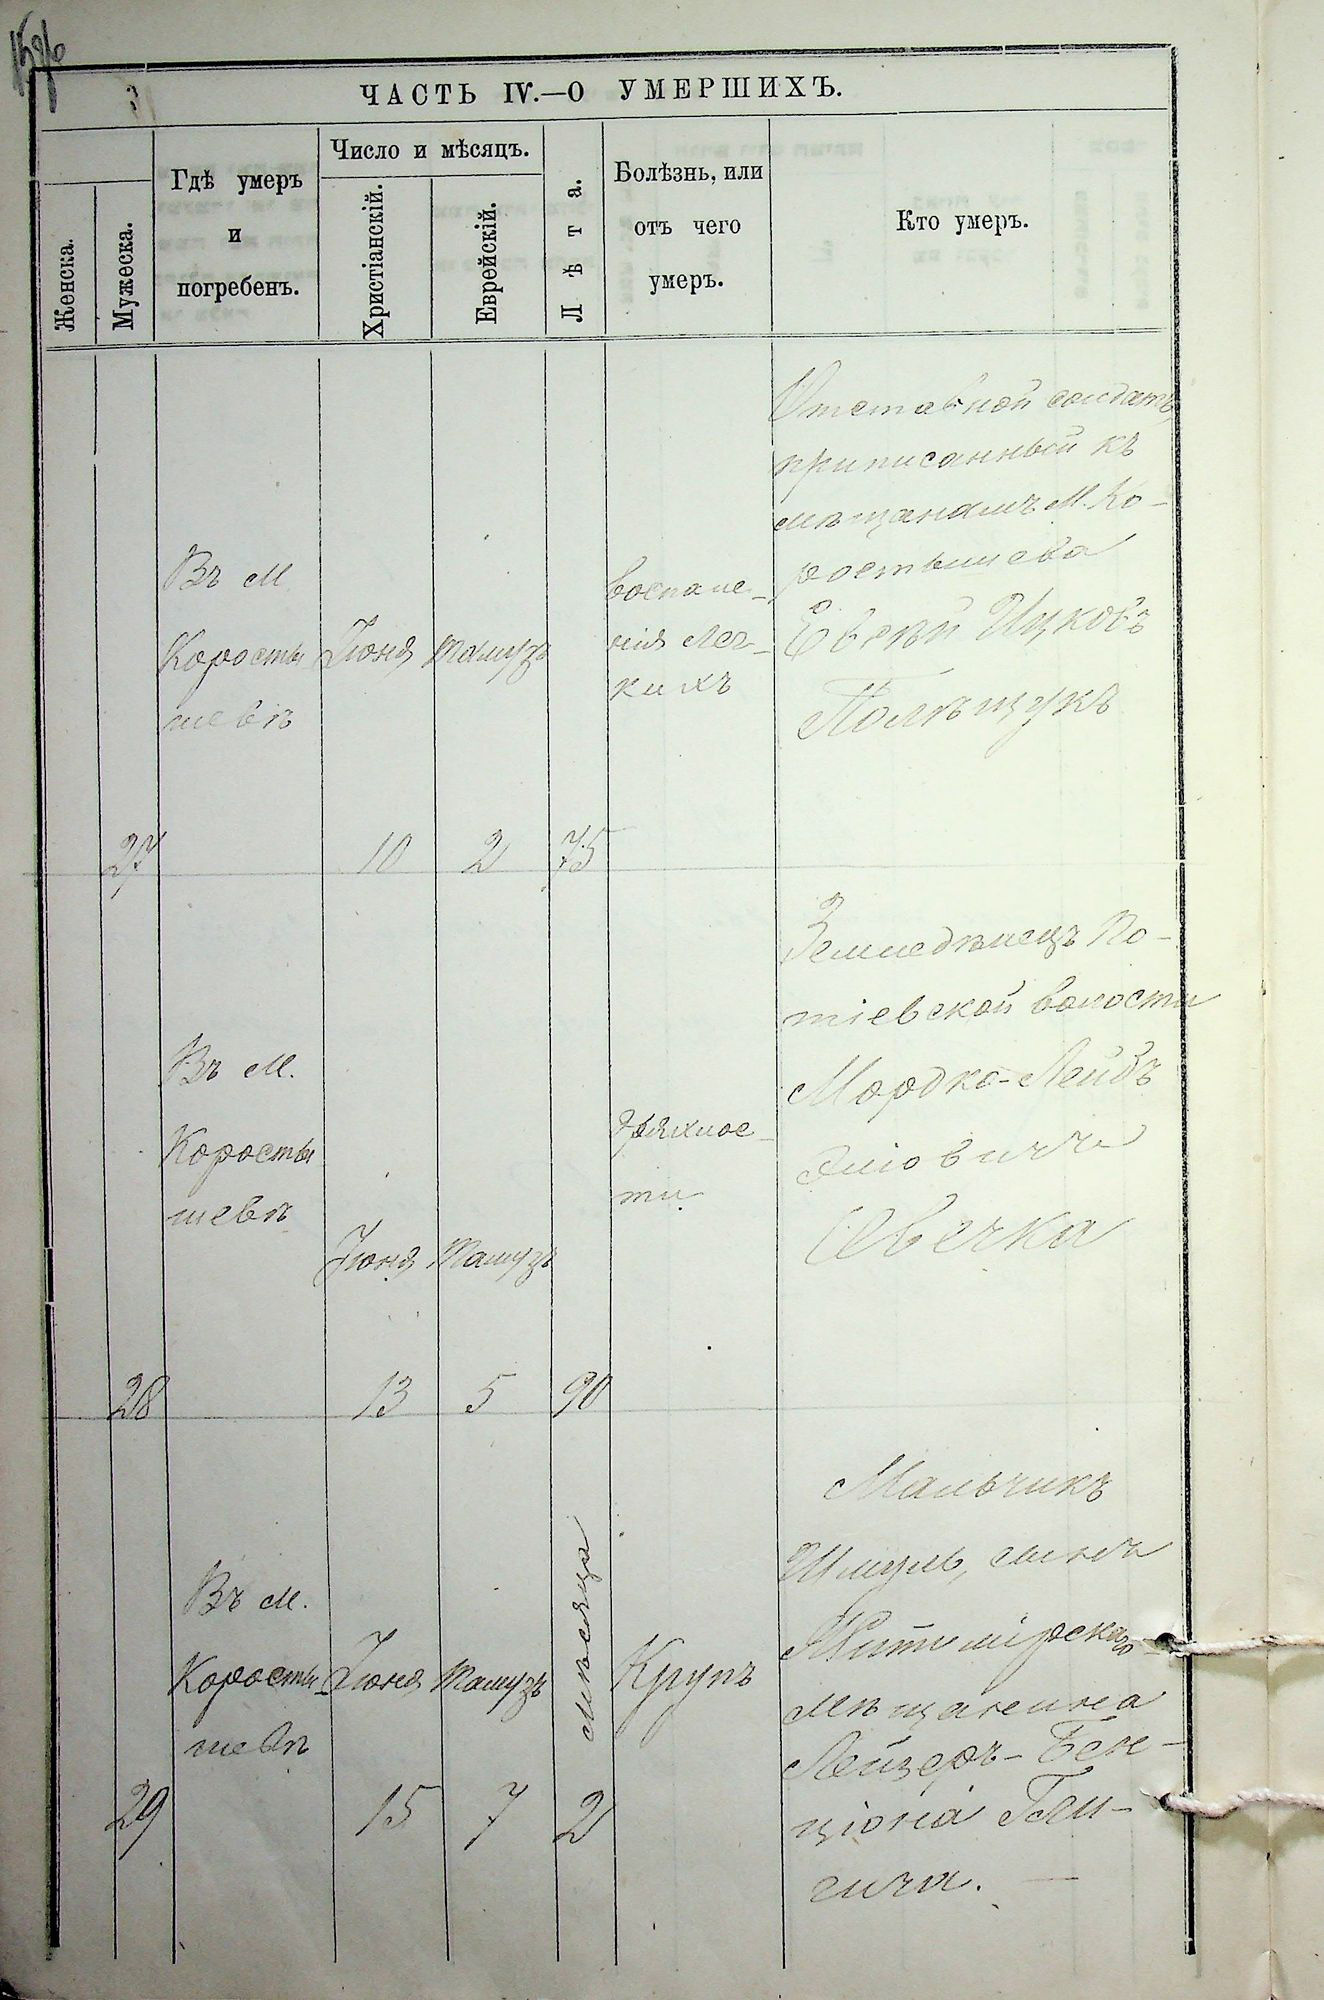 ЧАСТЬ IV.—О УМЕРШИХЪ.
Женска.
Мужеска.
Гдѣ умеръ
и
погребенъ.
Число и мѣсяцъ.
Христіанскій.
Еврейскій.
Лѣта.
Болѣзнь, или
отъ чего
умеръ.
Кто умеръ.
27
Въ м
Коросты
шевѣ
Іюня
10
Тамузъ
2
75
воспале-
нія лег-
кихъ
Отставной солдатъ,
приписанный къ
мѣщанамъ М. Ко-
ростышева
Евсѣй Ицковъ
Полѣщукъ
28
Въ м.
Коросты
шевѣ
Іюня
13
Тамузъ
5
90
дряхлос-
ти
Земледѣлецъ По-
тіевской волости
Мордко-Лейбъ
Эліовичъ
Овечка
29
Въ м.
Коросты-
шевѣ
Іюня
15
Тамузъ
7
2
мѣсяца
Крупъ
Мальчикъ
Шмуль, сынъ
Житомірскаго
мѣщанина
Лейзеръ-Бен-
ціона